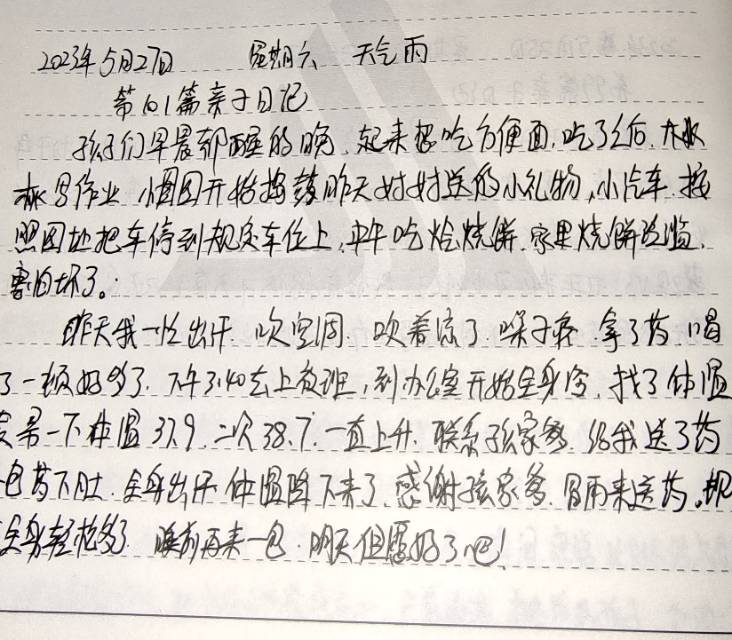 2023年5月27日 星期六 天气雨
第101篇亲子日记
孩子们早晨都醒的晚、起来想吃方便面,吃了之后,
写作业 小圆圆开始捣鼓昨天 送的小礼物,小汽车.按
照图地把车停到规定车位上,中午吃烩烧饼.家里烧饼
害怕坏了。
昨天我一忙出汗.吹空调.吹着凉了.嗓子疼.拿了药喝
了一顿好多了.下午3:40去上夜班,到办公室开始全身冷,找了体温
一下体温37.9.二次38.7.一直上升.联系孩家爹.给我送了药
一包药下肚.全身出汗体温降下来了.感谢孩家爹.冒雨来送药。现
全身轻松多了.睡前再来一包.明天但愿好了吧!